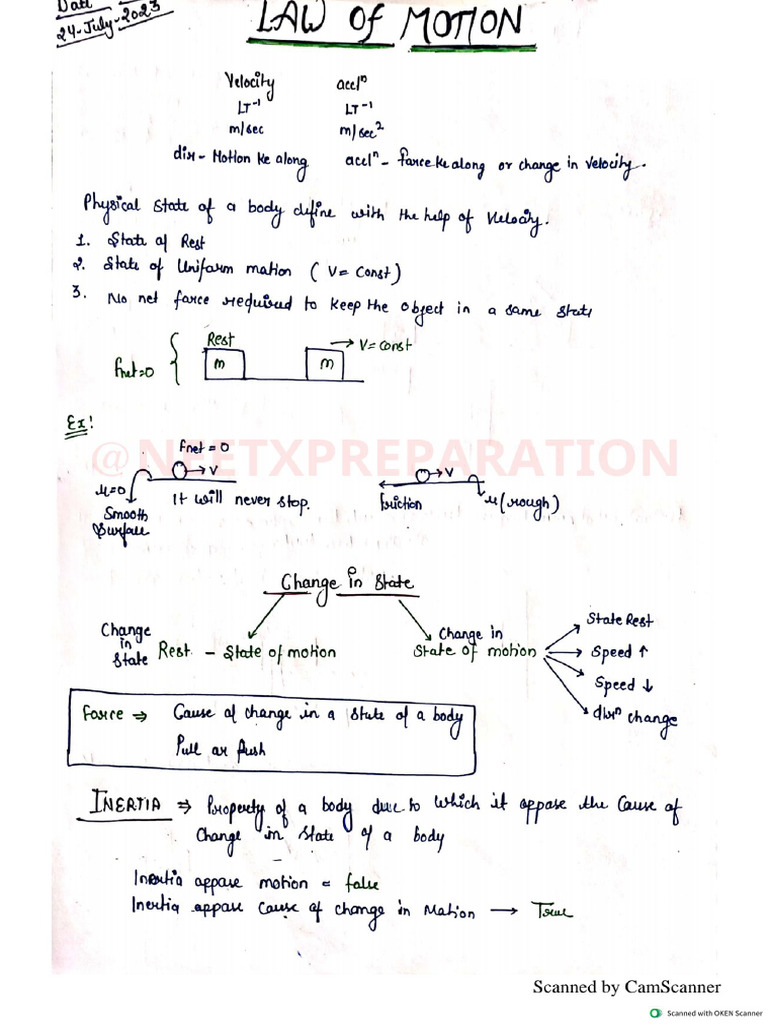 Date
24-July-2023
LAW of MOTION
Velocity accelⁿ
LT⁻¹ LT⁻¹
m/sec m/sec²
dir - Motion ke along accelⁿ - force ke along or change in velocity.
Physical state of a body define with the help of Velocity.
1. State of Rest
2. State of Uniform motion (V = Const)
3. No net force required to keep the object in a same state
Fnet=0 { Rest m m → V = const
Ex!
@NEETXPREPARATION
Fnet = 0
→ V → V
μ=0 It will never stop. friction μ (rough)
Smooth
Surface
Change in State
Change in State Rest - State of motion
Change in State of motion
State Rest
Speed ↑
Speed ↓
dirⁿ change
Force ⇒ Cause of change in a state of a body
Pull or Push
INERTIA ⇒ Property of a body due to which it oppose the cause of
Change in state of a body
Inertia appose motion = false
Inertia appose Cause of change in Motion → True
Scanned by CamScanner
Scanned with OKEN Scanner